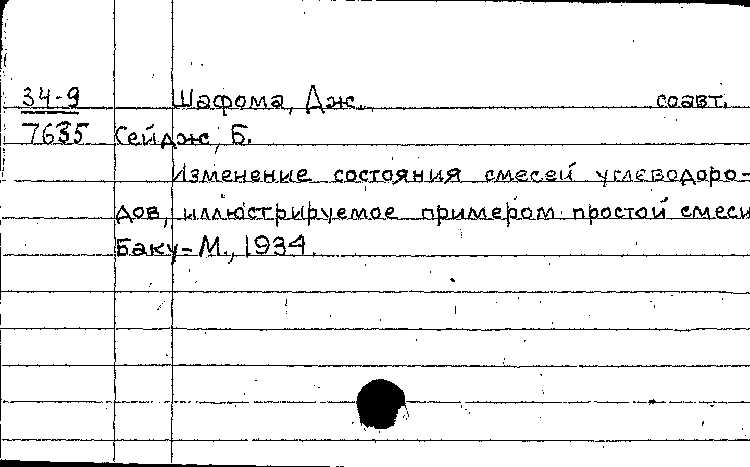 34-9 Шафома, Дж. соавт.
7635 Сейдж, Б.
Изменение состояния смесей углеводоро-
дов, иллюстрируемое примером простой смеси
Баку-М., 1934.